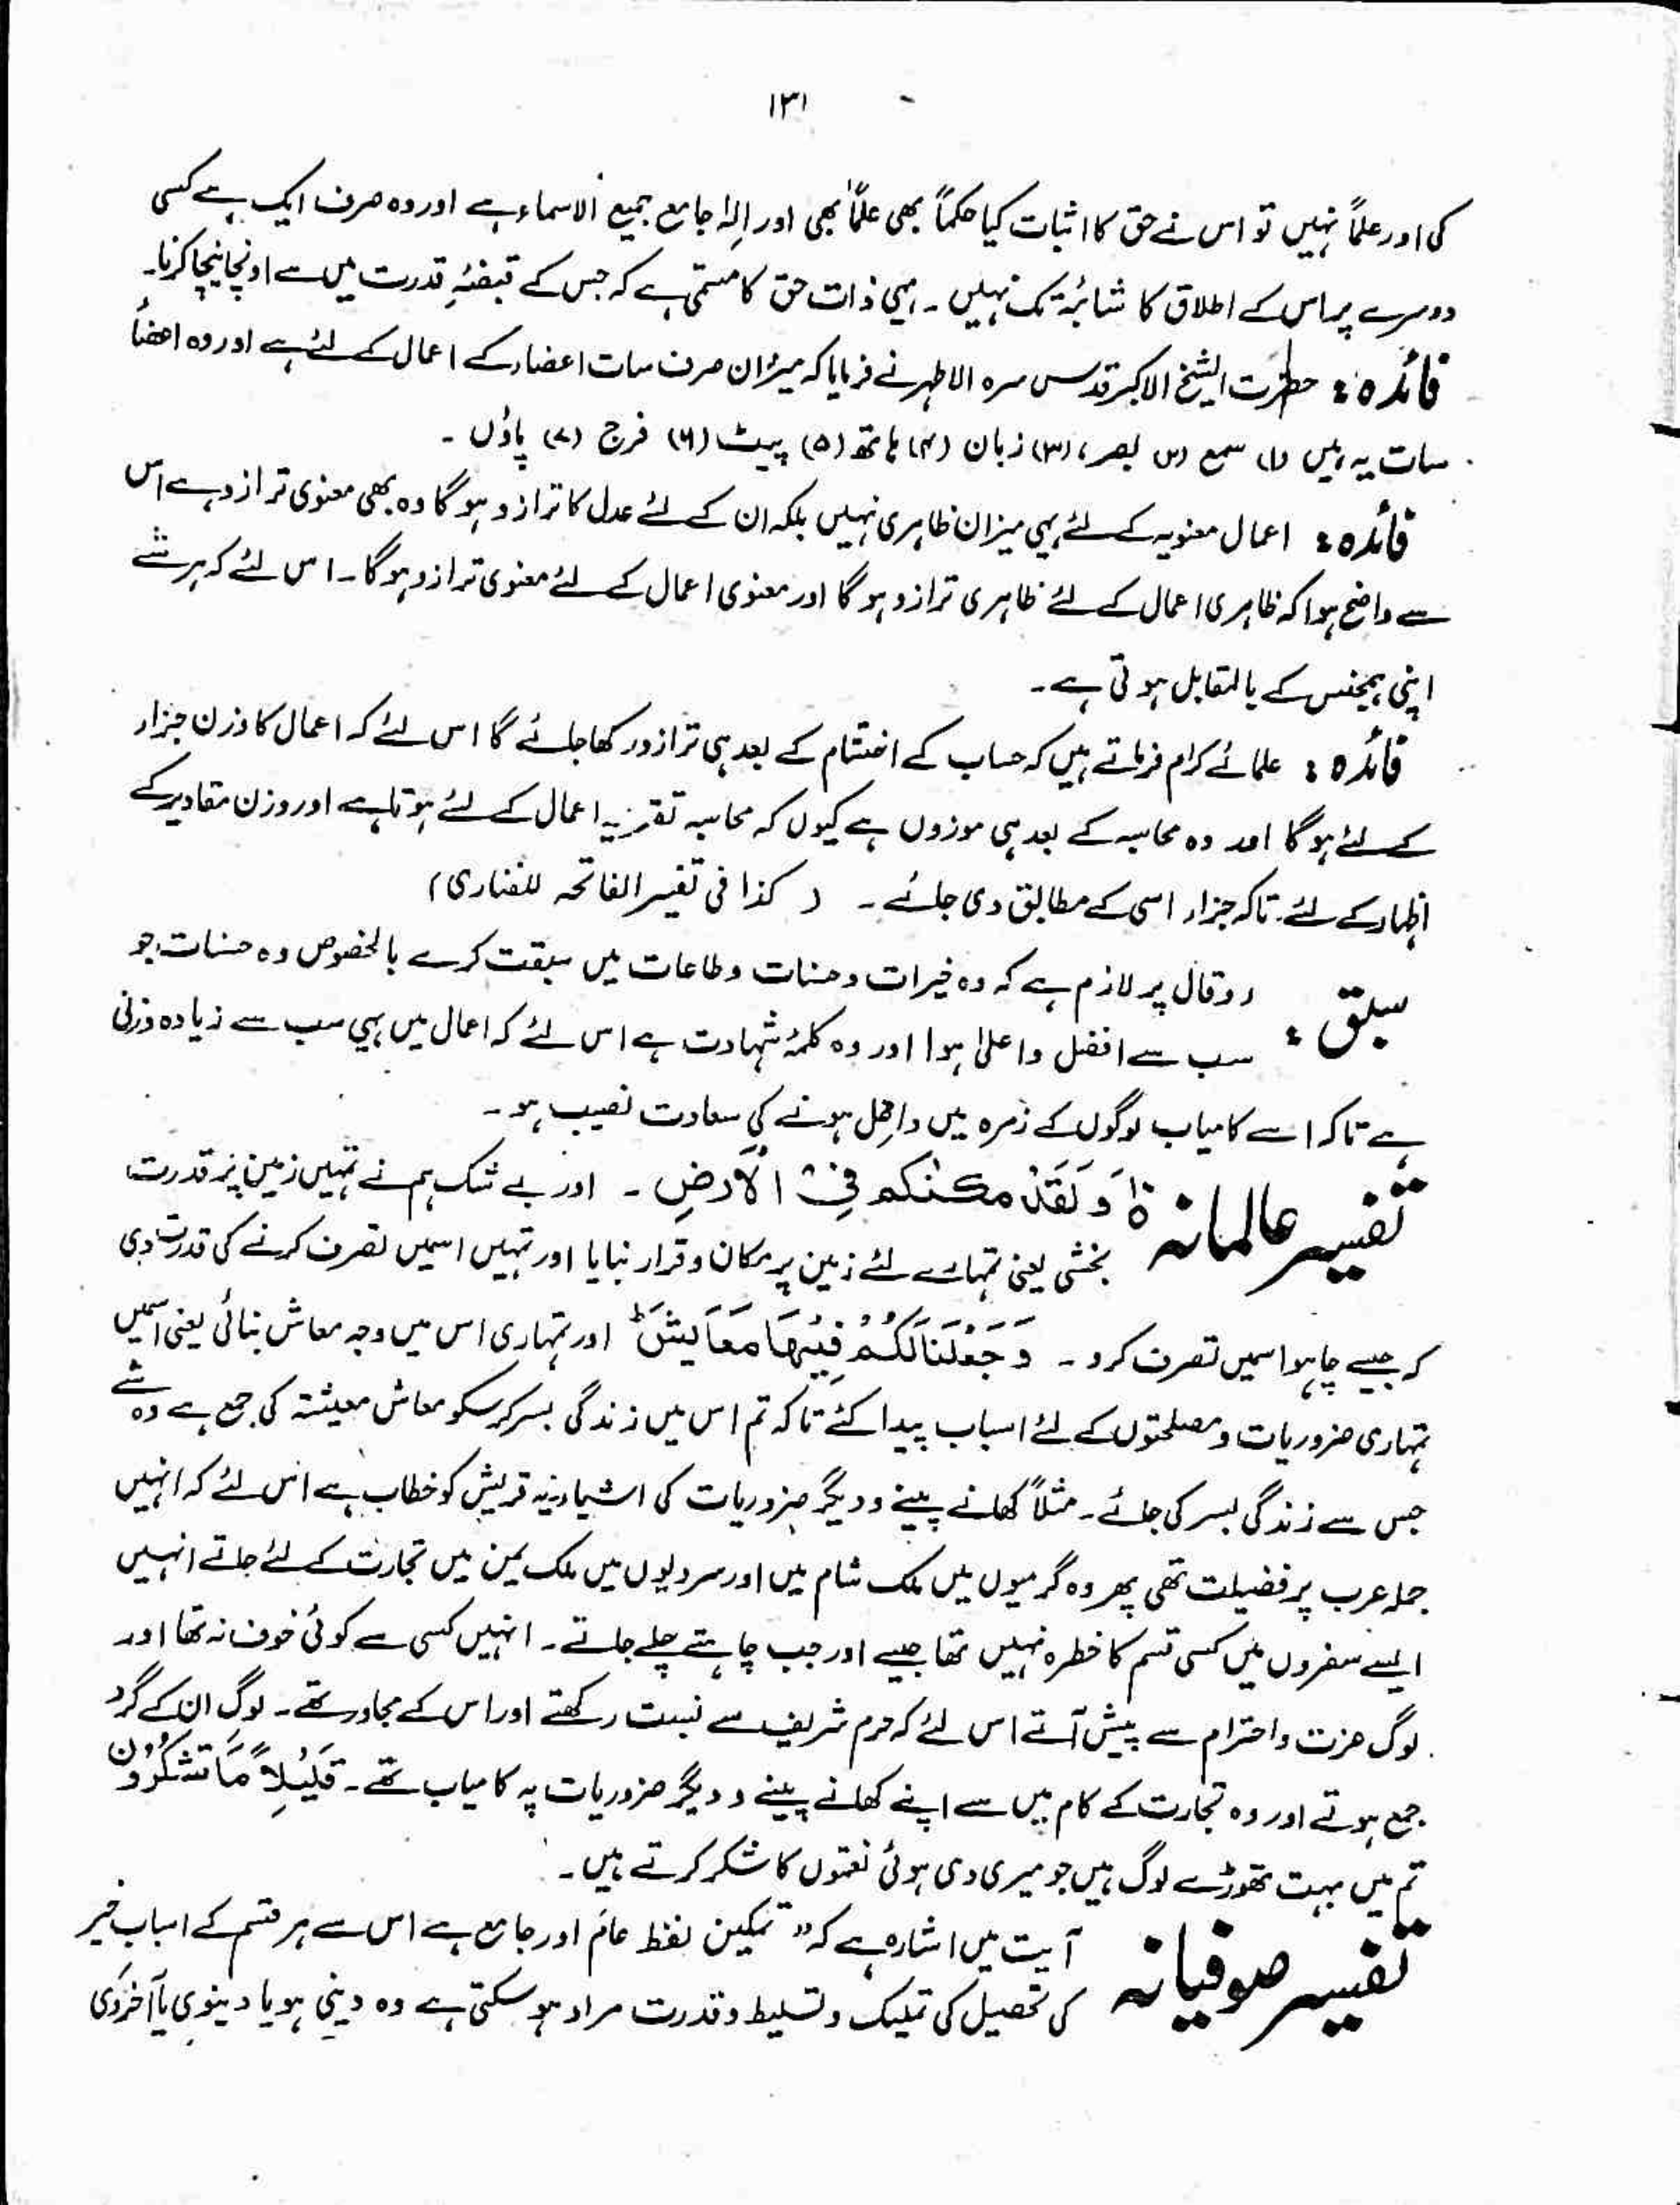 ۱۳۱
کی اور علماً نہیں تو اس نے حق کا اثبات کیا حکماً بھی علماً بھی اور الٰہ جامع جمیع الاسماء ہے اور وہ صرف ایک ہے کسی
دوسرے پر اس کے اطلاق کا شائبہ تک نہیں ۔ یہی ذات حق کا مسمّی ہے کہ جس کے قبضۂ قدرت میں ہے اونچا نیچا کرنا۔
فائدہ : حضرت الشیخ الاکبر قدس سرہ الاطہر نے فرمایا کہ میزان صرف سات اعضاء کے اعمال کے لئے ہے اور وہ اعضأ
سات یہ ہیں (۱) سمع (۲) بصر، (۳) زبان (۴) ہاتھ (۵) پیٹ (۶) فرج (۷) پاؤں ۔
فائدہ : اعمال معنویہ کے لئے یہی میزان ظاہری نہیں بلکہ ان کے لئے عدل کا ترازو ہو گا وہ بھی معنوی ترازو ہے اس
سے واضح ہوا کہ ظاہری اعمال کے لئے ظاہری ترازو ہو گا اور معنوی اعمال کے لئے معنوی ترازو ہو گا ۔ اس لئے کہ ہر شے
اپنی ہمجنس کے بالمقابل ہوتی ہے ۔
فائدہ : علمائے کرام فرماتے ہیں کہ حساب کے اختتام کے بعد ہی ترازو رکھا جائے گا اس لئے کہ اعمال کا وزن جزاء
کے لئے ہو گا اور وہ محاسبہ کے بعد ہی موزوں ہے کیوں کہ محاسبہ تقریر اعمال کے لئے ہوتا ہے اور وزن مقادیر کے
اظہار کے لئے تاکہ جزاء اسی کے مطابق دی جائے ۔ ( کذا فی تفسیر الفاتحہ للفناری )
سبق : پر لازم ہے کہ وہ خیرات و حسنات و طاعات میں سبقت کرے بالخصوص وہ حسنات جو
سب سے افضل و اعلیٰ ہوا اور وہ کلمۂ شہادت ہے اس لئے کہ اعمال میں یہی سب سے زیادہ وزنی
ہے تاکہ اسے کامیاب لوگوں کے زمرہ میں داخل ہونے کی سعادت نصیب ہو ۔
تفسیر عالمانہ وَلَقَدْ مکنٰکم فِی الْاَرْضِ ۔ اور بے شک ہم نے تمہیں زمین پر قدرت
بخشی یعنی تمہارے لئے زمین پر مکان و قرار بنایا اور تمہیں اسمیں تصرف کرنے کی قدرت دی
کہ جیسے چاہو اسمیں تصرف کرو ۔ وَجَعَلْنَا لَكُمْ فِيْهَا مَعَايِشَ ؕ اور تمہاری اس میں وجہ معاش بنائی یعنی اسمیں
تمہاری ضروریات و مصلحتوں کے لئے اسباب پیدا کئے تاکہ تم اس میں زندگی بسر کر سکو معاش معیشتہ کی جمع ہے وہ شے
جس سے زندگی بسر کی جائے ۔ مثلاً کھانے پینے و دیگر ضروریات کی اشیاء یہ قریش کو خطاب ہے اس لئے کہ انہیں
جملہ عرب پر فضیلت تھی پھر وہ گرمیوں میں ملک شام میں اور سردیوں میں ملک یمن میں تجارت کے لئے جاتے انہیں
ایسے سفروں میں کسی قسم کا خطرہ نہیں تھا جیسے اور جب چاہتے چلے جاتے ۔ انہیں کسی سے کوئی خوف نہ تھا اور
لوگ عزت و احترام سے پیش آتے اس لئے کہ حرم شریف سے نسبت رکھتے اور اس کے مجاور تھے ۔ لوگ ان کے گرد
جمع ہوتے اور وہ تجارت کے کام میں سے اپنے کھانے پینے و دیگر ضروریات پہ کامیاب تھے ۔ قَلِيْلاً مَّا تَشْكُرُوْنَ
تم میں بہت تھوڑے لوگ ہیں جو میری دی ہوئی نعمتوں کا شکر کرتے ہیں ۔
تفسیر صوفیانہ آیت میں اشارہ ہے کہ " تمکین لفظ عام اور جامع ہے اس سے ہر قسم کے اسباب خیر
کی تحصیل کی تملیک و تسلیط و قدرت مراد ہو سکتی ہے وہ دینی ہو یا دینوی یا آخروی